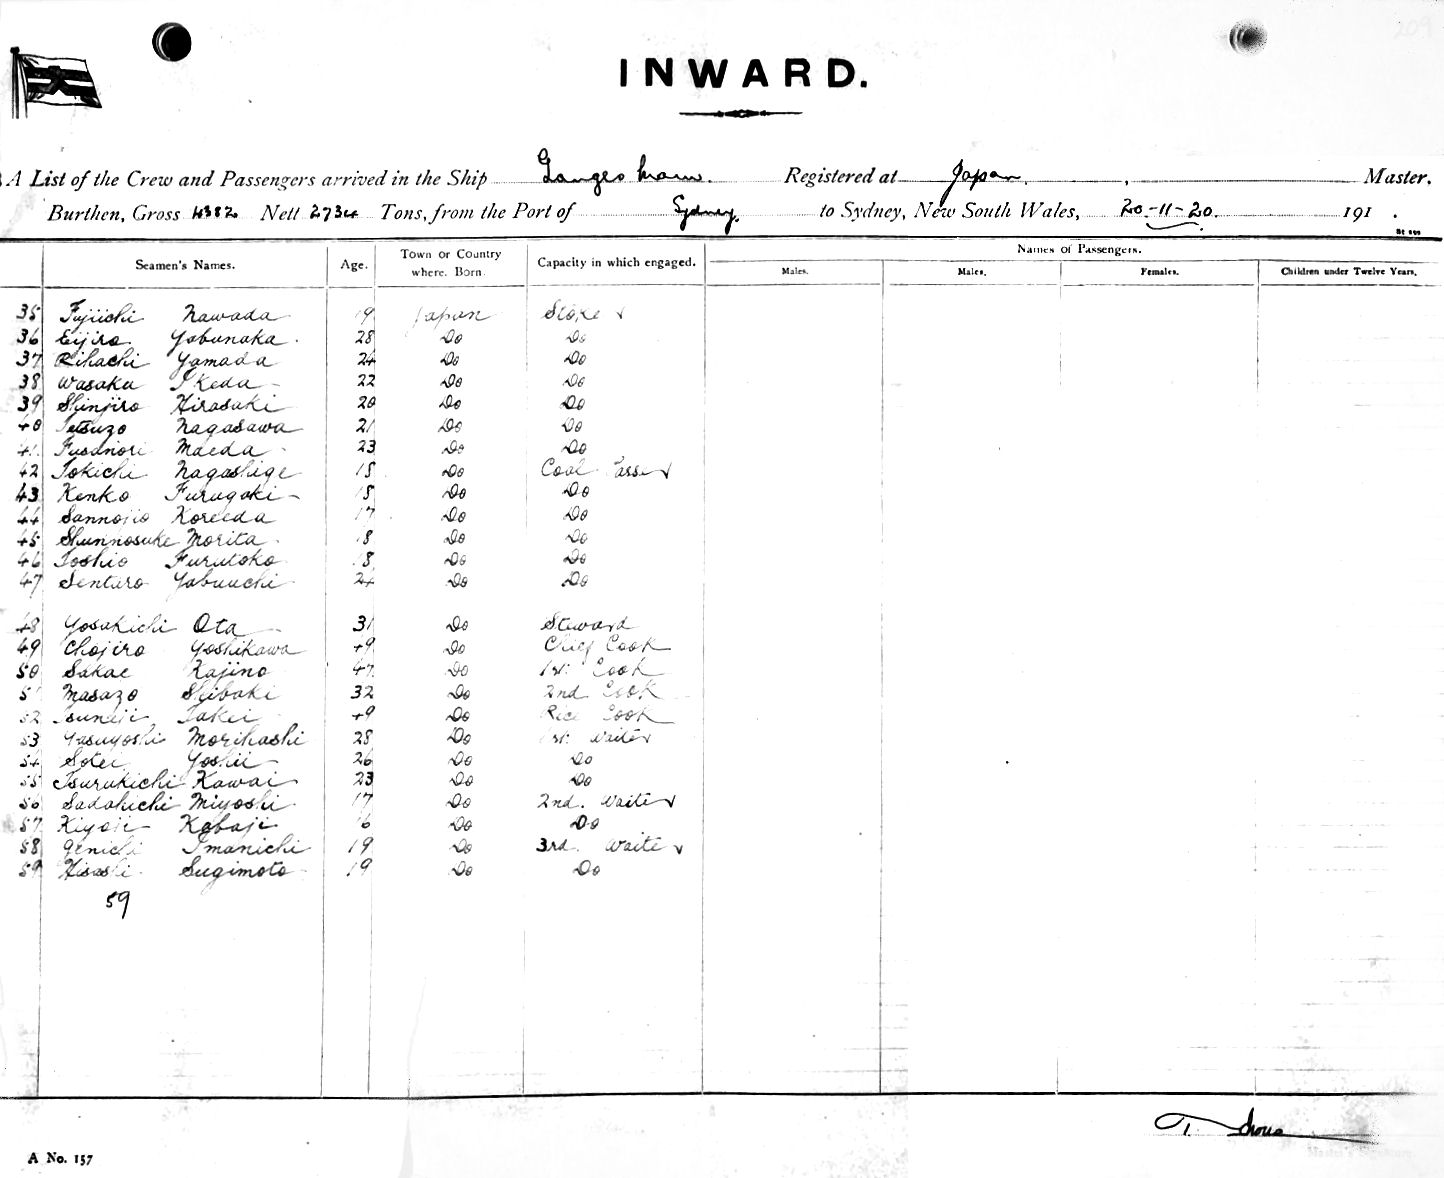 209
INWARD.
A List of the Crew and Passengers arrived in the Ship Ganges Maru. Registered at Japan, Master.
Burthen, Gross 4382 Nett 2734 Tons, from the Port of Sydney. to Sydney, New South Wales, 20-11-20. 191 .
Seamen's Names. Age. Town or Country where Born. Capacity in which engaged. Names of Passengers.
Males. Males. Females. Children under Twelve Years.
35 Fujiichi Nawada 19 Japan Stoker
36 Eijiro Yabunaka. 28 Do Do
37 Rihachi Yamada 24 Do Do
38 Wasaku Ikeda 22 Do Do
39 Shinjiro Hirasaki 20 Do Do
40 Tetsuzo Nagasawa 21 Do Do
41 Fusanori Maeda 23 Do Do
42 Tokichi Nagashige 18 Do Coal Passer
43 Kenko Furugaki 18 Do Do
44 Sannojio Koreeda 17 Do Do
45 Shunnosuke Morita 18 Do Do
46 Toshio Furutoko 18 Do Do
47 Sentaro Yabuuchi 24 Do Do
48 Yosakichi Ota 31 Do Steward
49 Chojiro Yoshikawa 49 Do Chief Cook
50 Sakae Kajino 47 Do 1st. Cook
51 Masazo Shibaki 32 Do 2nd Cook
52 Tsuneji Takei 49 Do Rice Cook
53 Yasuyoshi Morihashi 28 Do 1st. Waiter
54 Sotei Yoshii 26 Do Do
55 Tsurukichi Kawai 23 Do Do
56 Sadakichi Miyoshi 17 Do 2nd. Waiter
57 Kiyoji Kobaji 16 Do Do
58 Genichi Imanichi 19 Do 3rd. Waiter
59 Hisashi Sugimoto 19 Do Do
59
T.
Master's Signature.
A No. 157